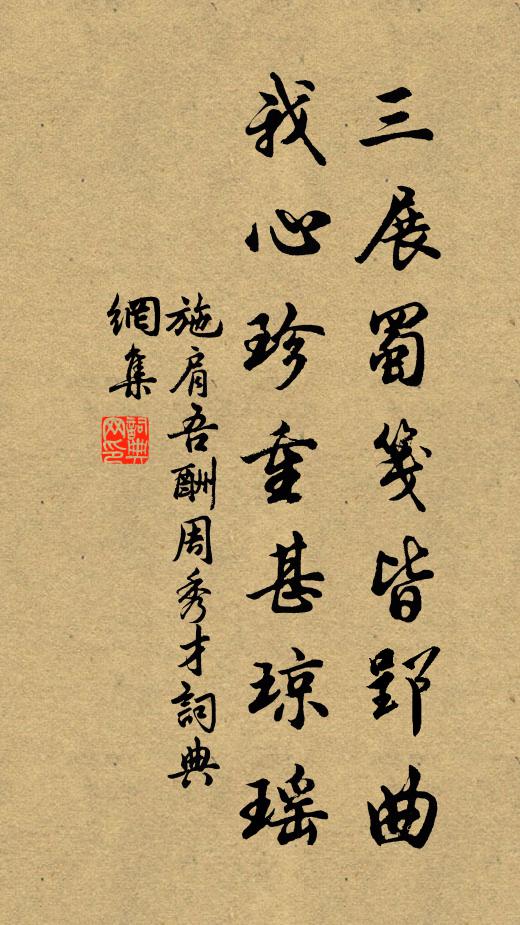 三展蜀箋皆郢曲
我心珍重甚琼瑶
施肩吾酬周秀才詞典
網集
詞典網印